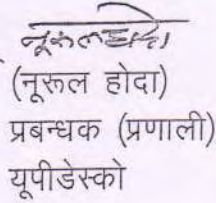 नूरुलहोदा
(नूरुल होदा)
प्रबन्धक (प्रणाली)
यूपीडेस्को